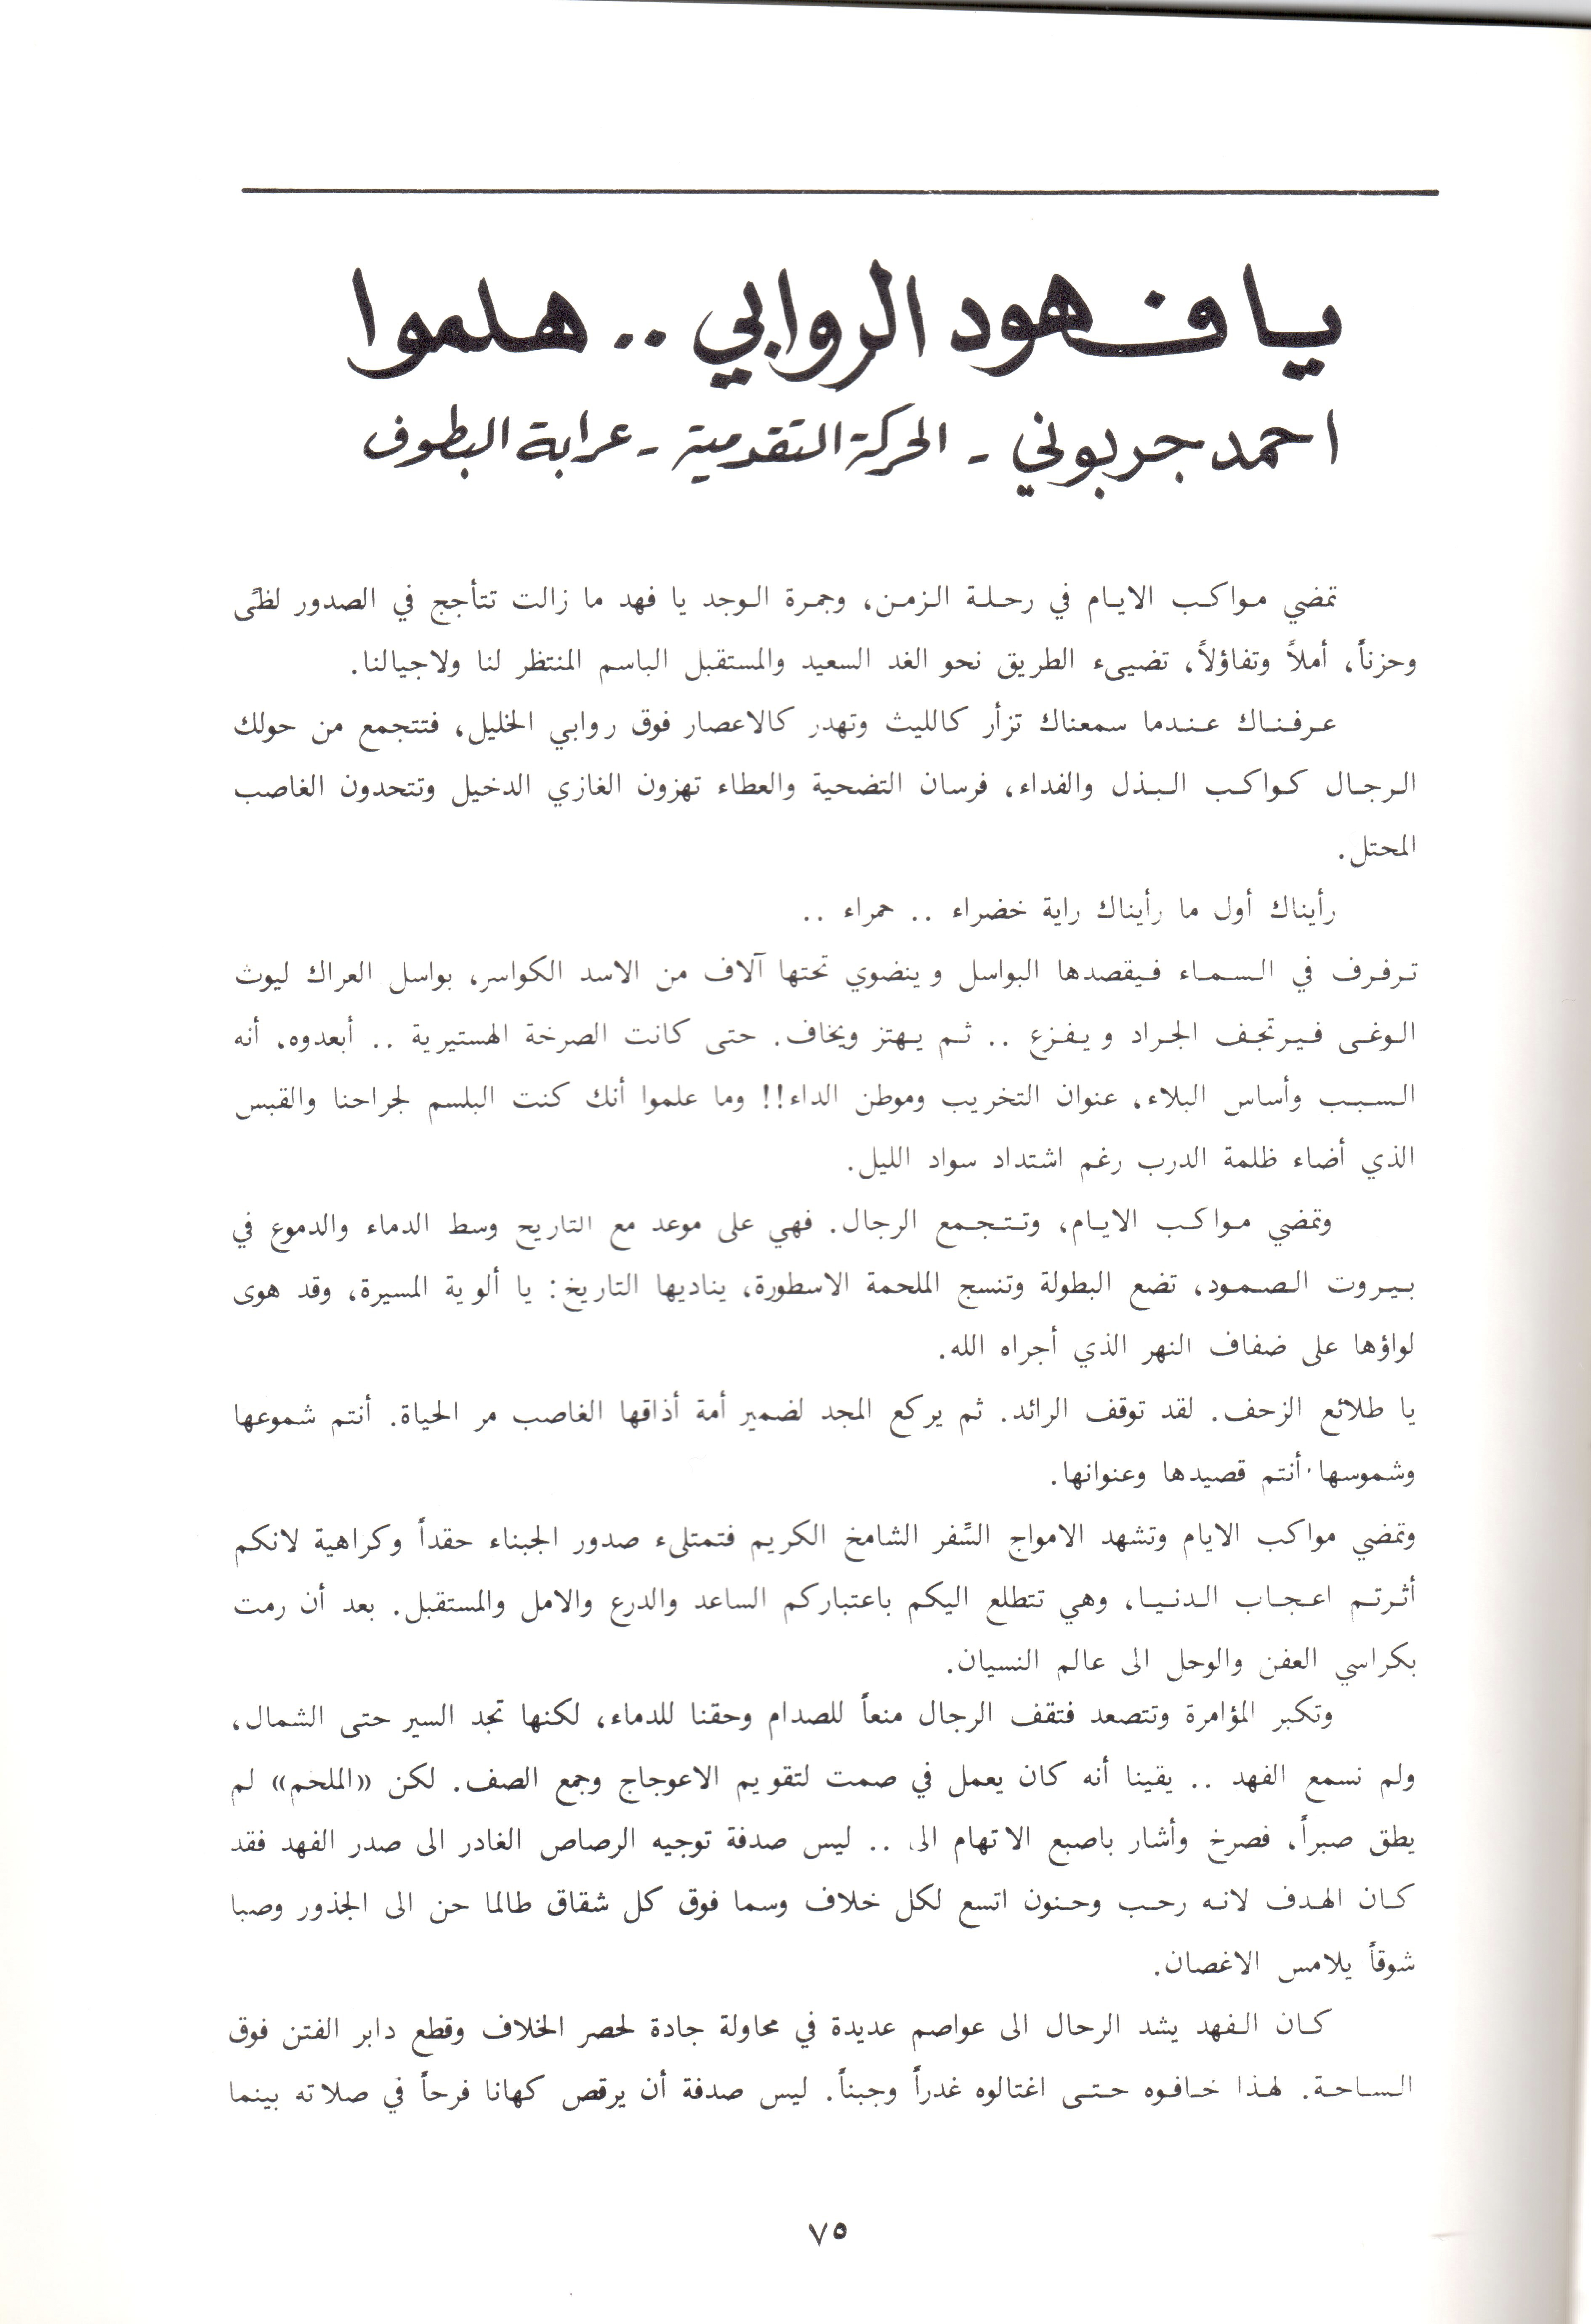 يا فهود الروابي .. هلموا
احمد جربوني - الحركة التقدمية - عرابة البطوف
تمضي مواكب الايام في رحلة الزمن، وجمرة الوجد يا فهد ما زالت تتأجج في الصدور لظىً
وحزناً، أملاً وتفاؤلاً، تضييء الطريق نحو الغد السعيد والمستقبل الباسم المنتظر لنا ولاجيالنا.
عرفناك عندما سمعناك تزأر كالليث وتهدر كالاعصار فوق روابي الخليل، فتتجمع من حولك
الرجال كواكب البذل والفداء، فرسان التضحية والعطاء تهزون الغازي الدخيل وتتحدون الغاصب
المحتل.
رأيناك أول ما رأيناك راية خضراء .. حمراء ..
ترفرف في السماء فيقصدها البواسل وينضوي تحتها آلاف من الاسد الكواسر، بواسل العراك ليوث
الوغى فيرتجف الجراد ويفزع .. ثم يهتز ويخاف. حتى كانت الصرخة الهستيرية .. أبعدوه، أنه
السبب وأساس البلاء، عنوان التخريب وموطن الداء!! وما علموا أنك كنت البلسم لجراحنا والقبس
الذي أضاء ظلمة الدرب رغم اشتداد سواد الليل.
وتمضي مواكب الايام، وتتجمع الرجال. فهي على موعد مع التاريح وسط الدماء والدموع في
بيروت الصمود، تضع البطولة وتنسج الملحمة الاسطورة، يناديها التاريخ: يا ألوية المسيرة، وقد هوى
لواؤها على ضفاف النهر الذي أجراه الله.
يا طلائع الزحف. لقد توقف الرائد. ثم يركع المجد لضمير أمة أذاقها الغاصب مر الحياة. أنتم شموعها
وشموسها، أنتم قصيدها وعنوانها.
وتمضي مواكب الايام وتشهد الامواج السِّفر الشامخ الكريم فتمتلىء صدور الجبناء حقداً وكراهية لانكم
أثرتم اعجاب الدنيا، وهي تتطلع اليكم باعتباركم الساعد والدرع والامل والمستقبل. بعد أن رمت
بكراسي العفن والوحل الى عالم النسيان.
وتكبر المؤامرة وتتصعد فتقف الرجال منعاً للصدام وحقنا للدماء، لكنها تجد السير حتى الشمال،
ولم نسمع الفهد .. يقينا أنه كان يعمل في صمت لتقويم الاعوجاج وجمع الصف. لكن «الملحم» لم
يطق صبراً، فصرخ وأشار باصبع الاتهام الى .. ليس صدفة توجيه الرصاص الغادر الى صدر الفهد فقد
كان الهدف لانه رحب وحنون اتسع لكل خلاف وسما فوق كل شقاق طالما حن الى الجذور وصبا
شوقاً يلامس الاغصان.
كان الفهد يشد الرحال الى عواصم عديدة في محاولة جادة لحصر الخلاف وقطع دابر الفتن فوق
الساحة. لهذا خافوه حتى اغتالوه غدراً وجبناً. ليس صدفة أن يرقص كهانا فرحاً في صلاته بينما
٧٥